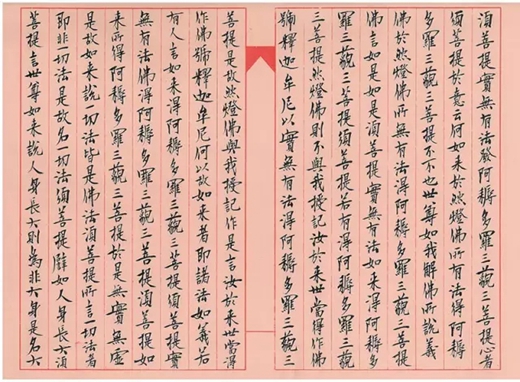 須菩提實無有法發阿耨多羅三藐三菩提心者
須菩提於意云何如來於然燈佛所有法得阿耨
多羅三藐三菩提不不也世尊如我解佛所說義
佛於然燈佛所無有法得阿耨多羅三藐三菩提
佛言如是如是須菩提實無有法如來得阿耨多
羅三藐三菩提須菩提若有法得阿耨多羅三藐
三菩提然燈佛則不與我授記汝於來世當得作佛
號釋迦牟尼以實無有法得阿耨多羅三藐三
菩提是故然燈佛與我授記作是言汝於來世當得
作佛號釋迦牟尼何以故如來者即諸法如義若
有人言如來得阿耨多羅三藐三菩提須菩提實
無有法佛得阿耨多羅三藐三菩提須菩提如
來所得阿耨多羅三藐三菩提於是無實無虛
是故如來說一切法皆是佛法須菩提所言一切法者
即非一切法是故名一切法須菩提譬如人身長大須
菩提言世尊如來說人身長大則為非大身是名大